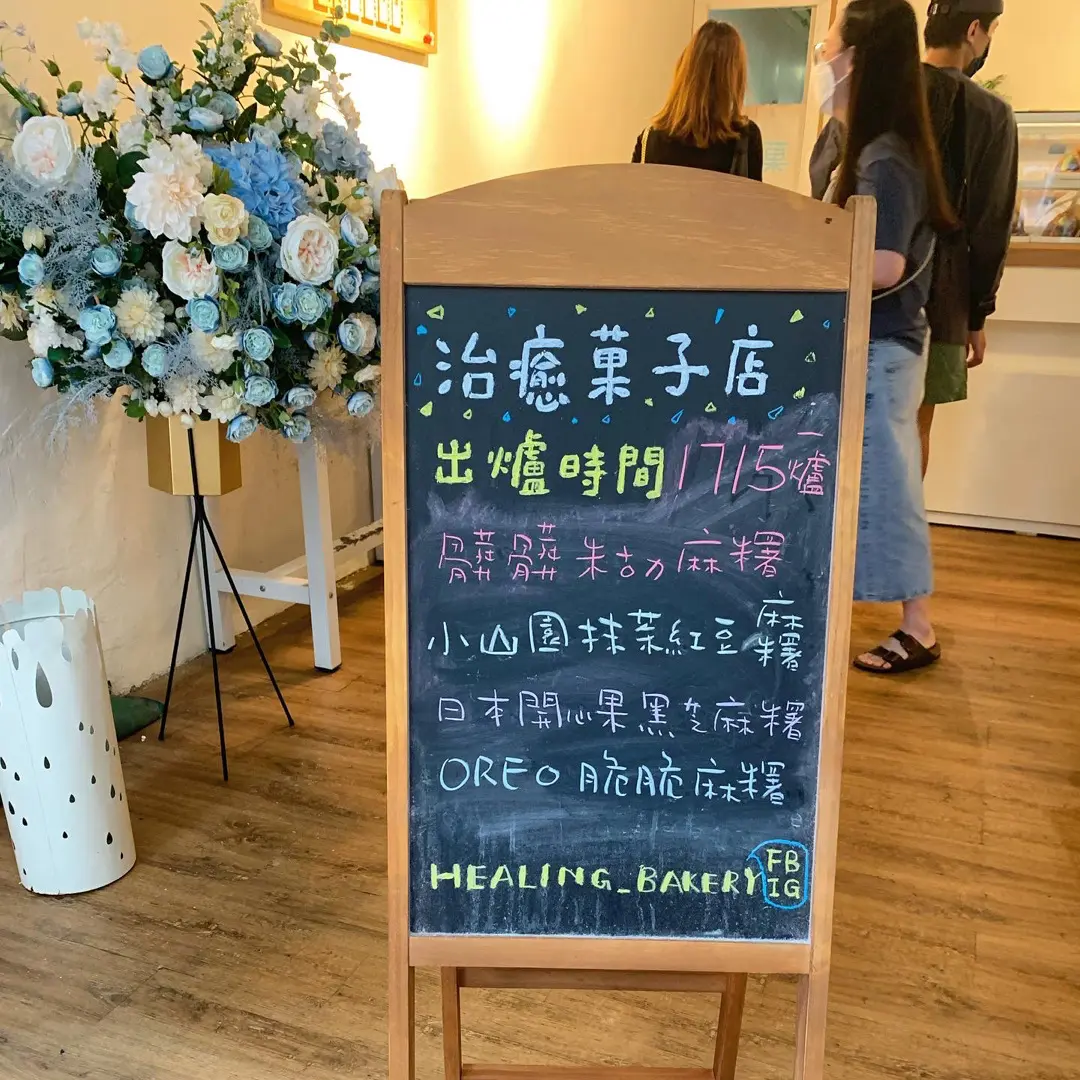 治癒菓子店
出爐時間1715一爐
髒髒朱古力麻糬
小山園抹茶紅豆麻糬
日本開心果黑芝麻糬
OREO脆脆麻糬
HEALING_BAKERY FB IG